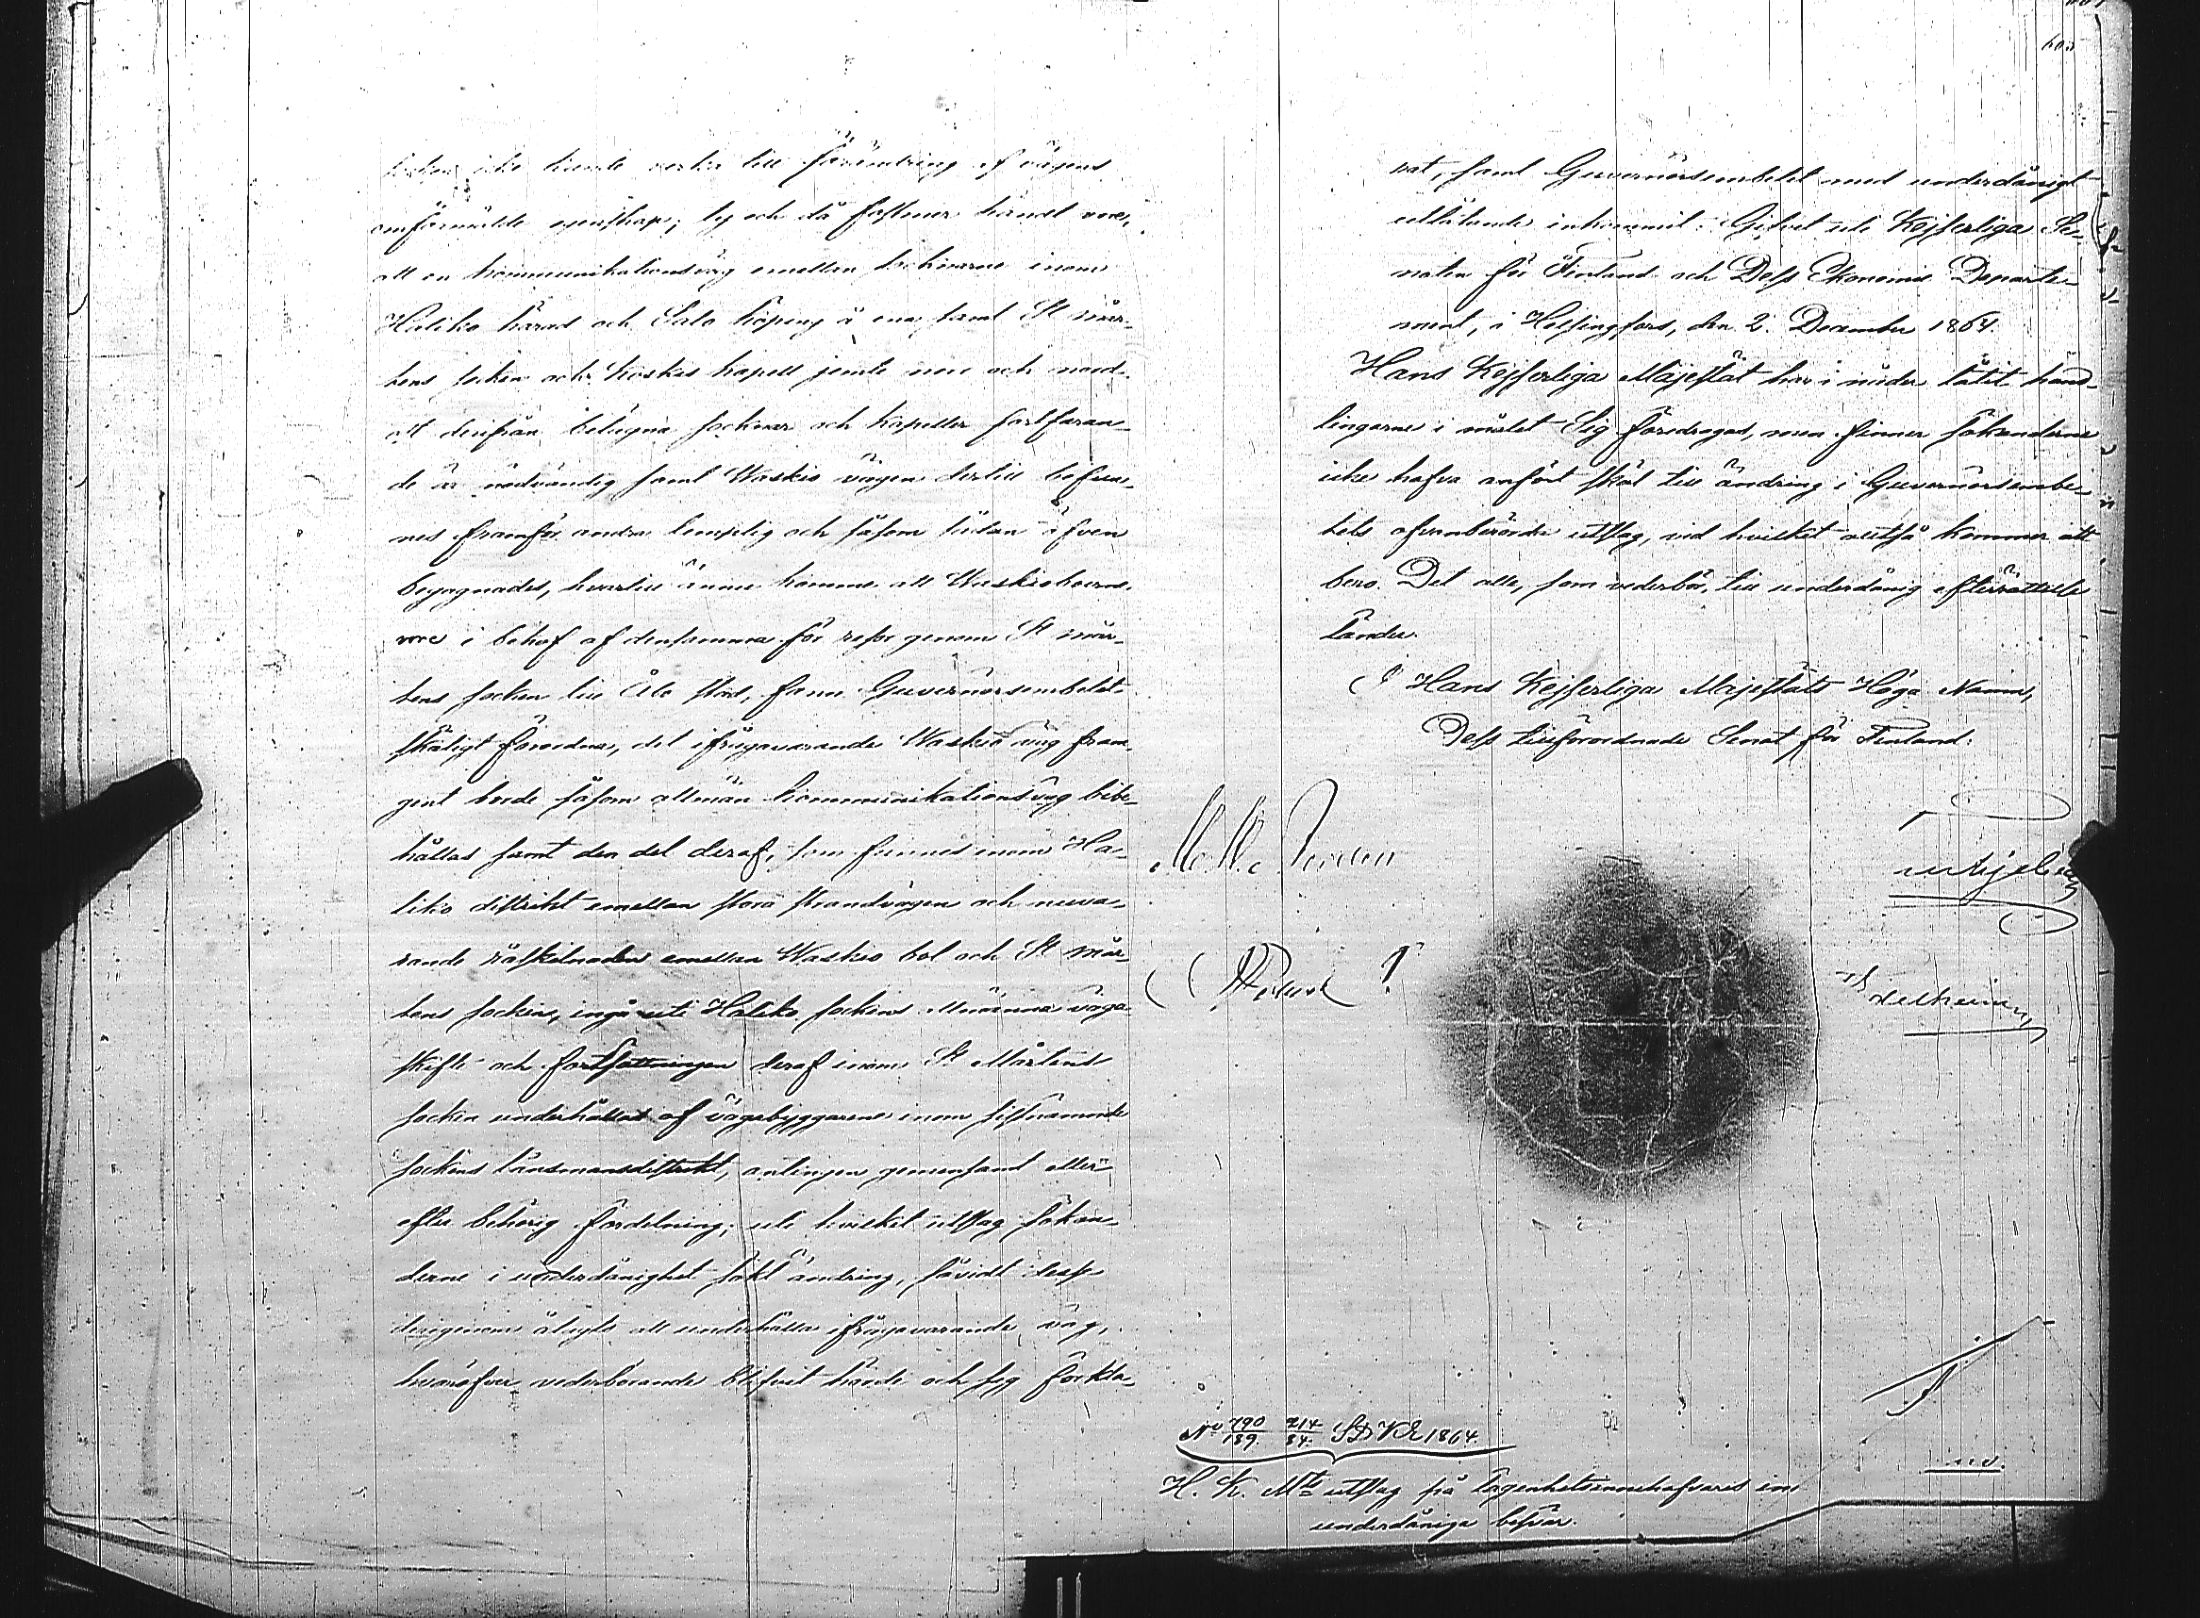 icke kunde verka till förändring af vägens
omförmälde egenskap; ty och då sålunda kändt vore,
att en kommunikationsväg emellan socknarne inom
Haliko härad och Salo köping å ena samt St Mår-
tens socken och Koskis kapell jemte mer och nord-
ost derifrån belägna socknar och kapeller fortfaran-
de är nödvändig samt Waskio vägen dertill befun-
nes framför andra lemplig och såsom sådan äfven
begagnades, hvartill ännu komme att Waskioboerne
vore i behof af densamma för resor genom St Mår-
tens socken till Åbo stad, funne Guvernörsembetet
skäligt förordna, det ifrågavarande Waskio väg fram-
gent borde såsom allmän kommunikationsväg bibe-
hållas samt den del deraf, som funnes inom Ha-
liko distrikt emellan stora strandvägen och nuva-
rande råskilnaden emellan Waskio bol och St Mår-
tens socken, ingå uti Haliko sockens allmänna väga-
skifte och fortsättningen deraf inom St Mårtens
socken underhållas af vägabyggarene inom sistnämnde
sockens länsmansdistrikt, antingen gemensamt eller
efter behörig fördelning; uti hvilket utslag sökan-
derne i underdånighet sökt ändring, såvidt desse
derigenom ålagts att underhålla ifrågavarande väg,
hvaröfver vederbörande blifvit hörde och sig förkla-
rat, samt Guvernörsembetet med underdånigt
utlåtande inkommit: Gifvet uti Kejserliga Se-
naten för Finland och Dess Ekonomie Departe-
ment, i Helsingfors, den 2. December 1864.
Hans Kejserliga Majestät har i nåder låtit hand-
lingarne i målet Sig föredragas, men finner sökanderne
icke hafva anfört skäl till ändring i Guvernörsembe-
tets ofvanberörde utslag, vid hvilket altså kommer att
bero. Det alle, som vederbör, till underdånig efterrättelse
länder.
I Hans Kejserliga Majestäts Höga Namn,
Dess tillförordnade Senat för Finland:
No 790/189. 214/84. S.D. K.E. 1864.
H. K. Mts utslag på lägenhetsinnehafvares
underdåniga besvär.